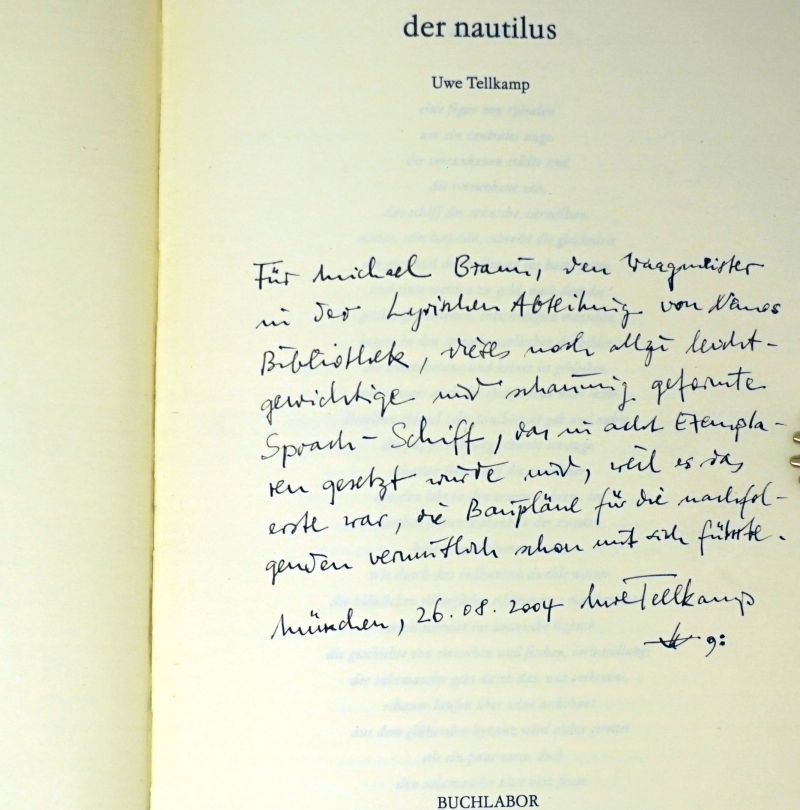 der nautilus
Uwe Tellkamp
Für Michael Braun, den Waagmeister
in der Lyrischen Abteilung von Nemos
Bibliothek, dieses noch allzu leicht-
gewichtige und schaumig geformte
Sprach-Schiff, das in acht Exempla-
ren gesetzt wurde und, weil es das
erste war, die Baupläne für die nachfol-
genden vermutlich schon mit sich führte.
München, 26.08.2004 Uwe Tellkamp
BUCHLABOR